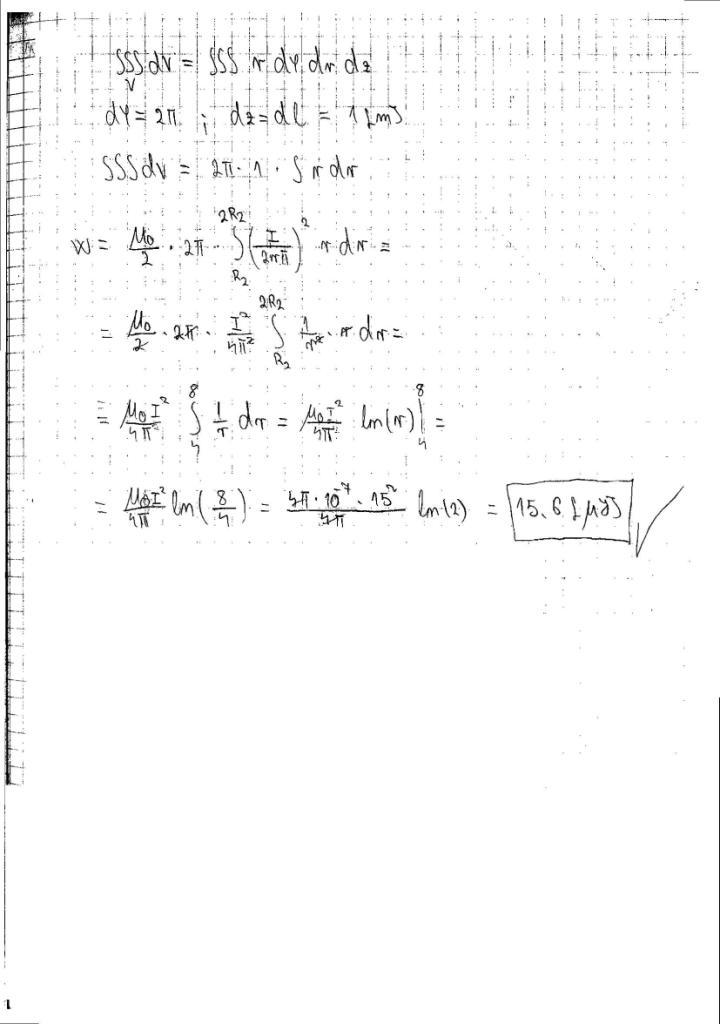 ∫∫∫ dV = ∫∫∫ r dφ dr dz
V
dφ = 2π ; dz = dl = 1 [m]
∫∫∫ dV = 2π · 1 · ∫ r dr
W = μ₀/2 · 2π · ∫_{R₂}^{2R₂} (I/2rπ)² r dr =
= μ₀/2 · 2π · I²/4π² ∫_{R₂}^{2R₂} 1/r² · r dr =
= μ₀I²/4π ∫_{4}^{8} 1/r dr = μ₀I²/4π ln(r)|_{4}^{8} =
= μ₀I²/4π ln(8/4) = 4π·10⁻⁷·15²/4π ln(2) = 15.6 [μJ] ✓
1